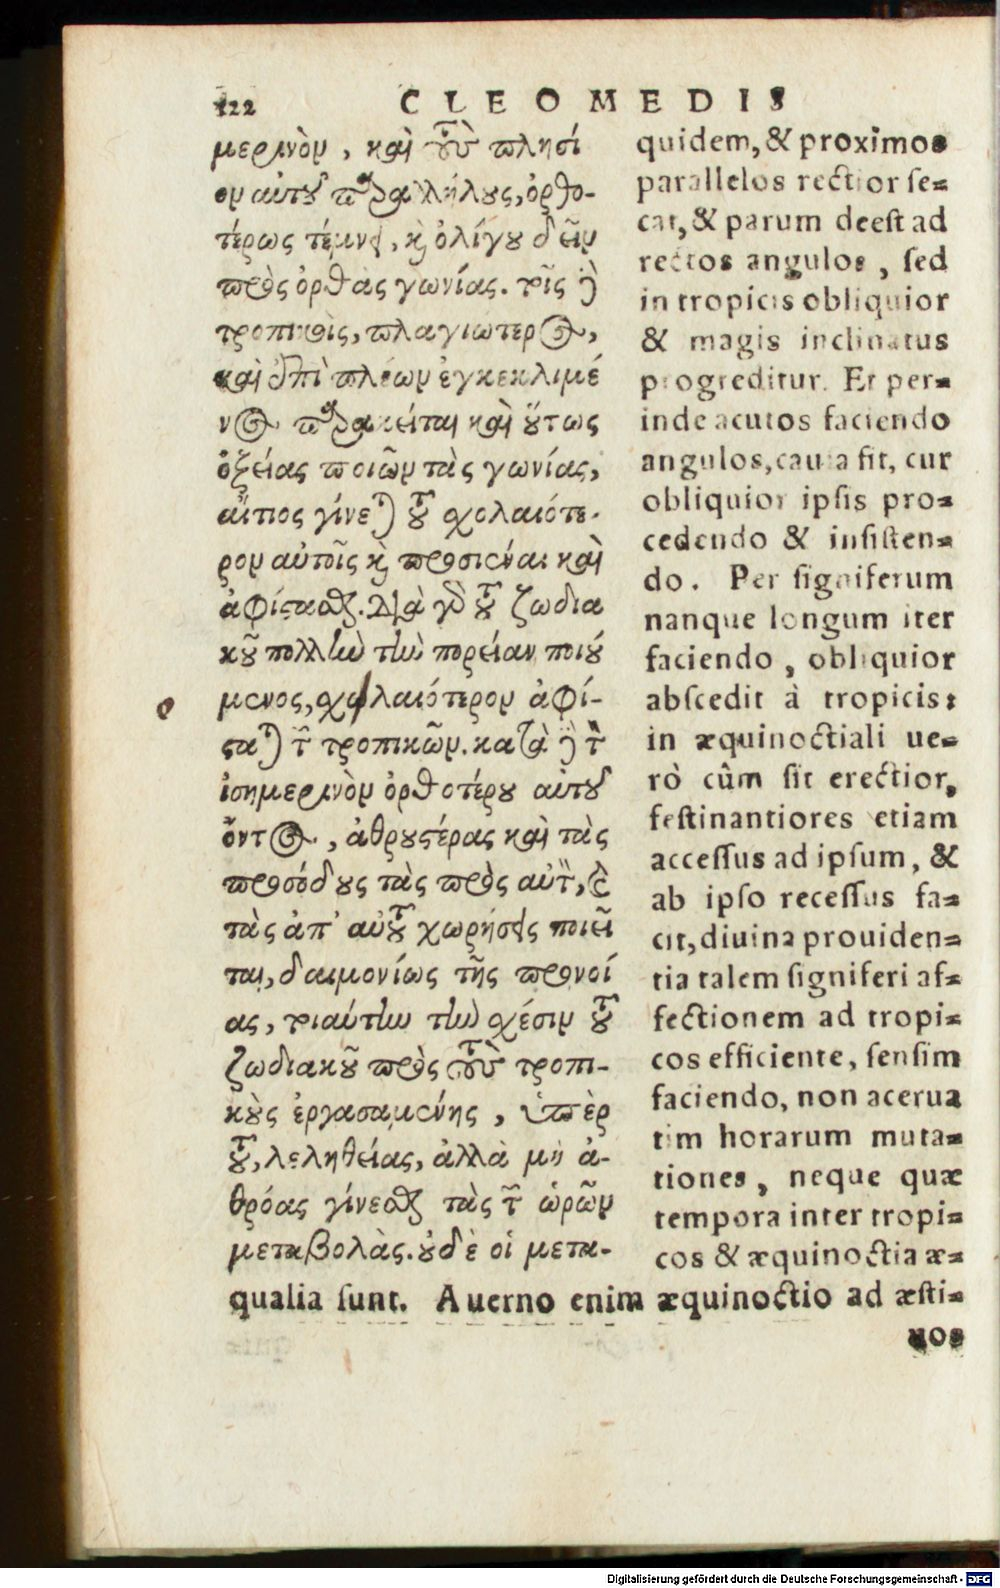 122 CLEOMEDIS
μερινὸν, καὶ τοὺς πλησί
ον αὐτοῦ παραλλήλους, ὀρθο-
τέρως τέμνει, κὶ ὀλίγου δεῖν
πρὸς ὀρθὰς γωνίας. τοῖς δὲ
τροπικοῖς, πλαγιώτερος,
καὶ ἐπὶ πλέων ἐγκεκλιμέ
νος παράκειται καὶ οὕτως
ὀξείας ποιῶν τὰς γωνίας,
αἴτιος γίνεται τοῦ σχολαιότε-
ρον αὐτοῖς κὶ προσιέναι καὶ
ἀφίστασθαι. Διὰ γὸ τοῦ ζωδια
κοῦ πολλὴν τὴν πορείαν ποιού
μενος, σχολαιότερον ἀφί-
σταται τῶν τροπικῶν. κατὰ δὲ τὸν
ἰσημερινὸν ὀρθοτέρου αὐτοῦ
ὄντος, ἀθρουστέρας καὶ τὰς
προσόδους τὰς πρὸς αὐτὸν, κὶ
τὰς ἀπ' αὐτοῦ χωρήσεις ποιεῖ
ται, δαιμονίως τῆς προνοί
ας, τοιαύτην τὴν σχέσιν τοῦ
ζωδιακοῦ πρὸς τοὺς τροπι-
κοὺς ἐργασαμένης, ὑπὲρ
τοῦ, λεληθείας, ἀλλὰ μὴ ἀ-
θρόας γίνεσθαι τὰς τῶν ὡρῶν
μεταβολὰς. οὐδὲ οἱ μετα-
quidem, & proximos
parallelos rectior se-
cat, & parum deest ad
rectos angulos, sed
in tropicis obliquior
& magis inclinatus
progreditur. Et per-
inde acutos faciendo
angulos, causa fit, cur
obliquior ipsis pro-
cedendo & insisten-
do. Per signiferum
nanque longum iter
faciendo, obliquior
abscedit à tropicis:
in æquinoctiali ue-
rò cûm sit erectior,
festinantiores etiam
accessus ad ipsum, &
ab ipso recessus fa-
cit, diuina prouiden-
tia talem signiferi af-
fectionem ad tropi-
cos efficiente, sensim
faciendo, non acerua
tim horarum muta-
tiones, neque quæ
tempora inter tropi-
cos & æquinoctia æ-
qualia sunt. A uerno enim æquinoctio ad æsti-
uos
Digitalisierung gefördert durch die Deutsche Forschungsgemeinschaft - DFG